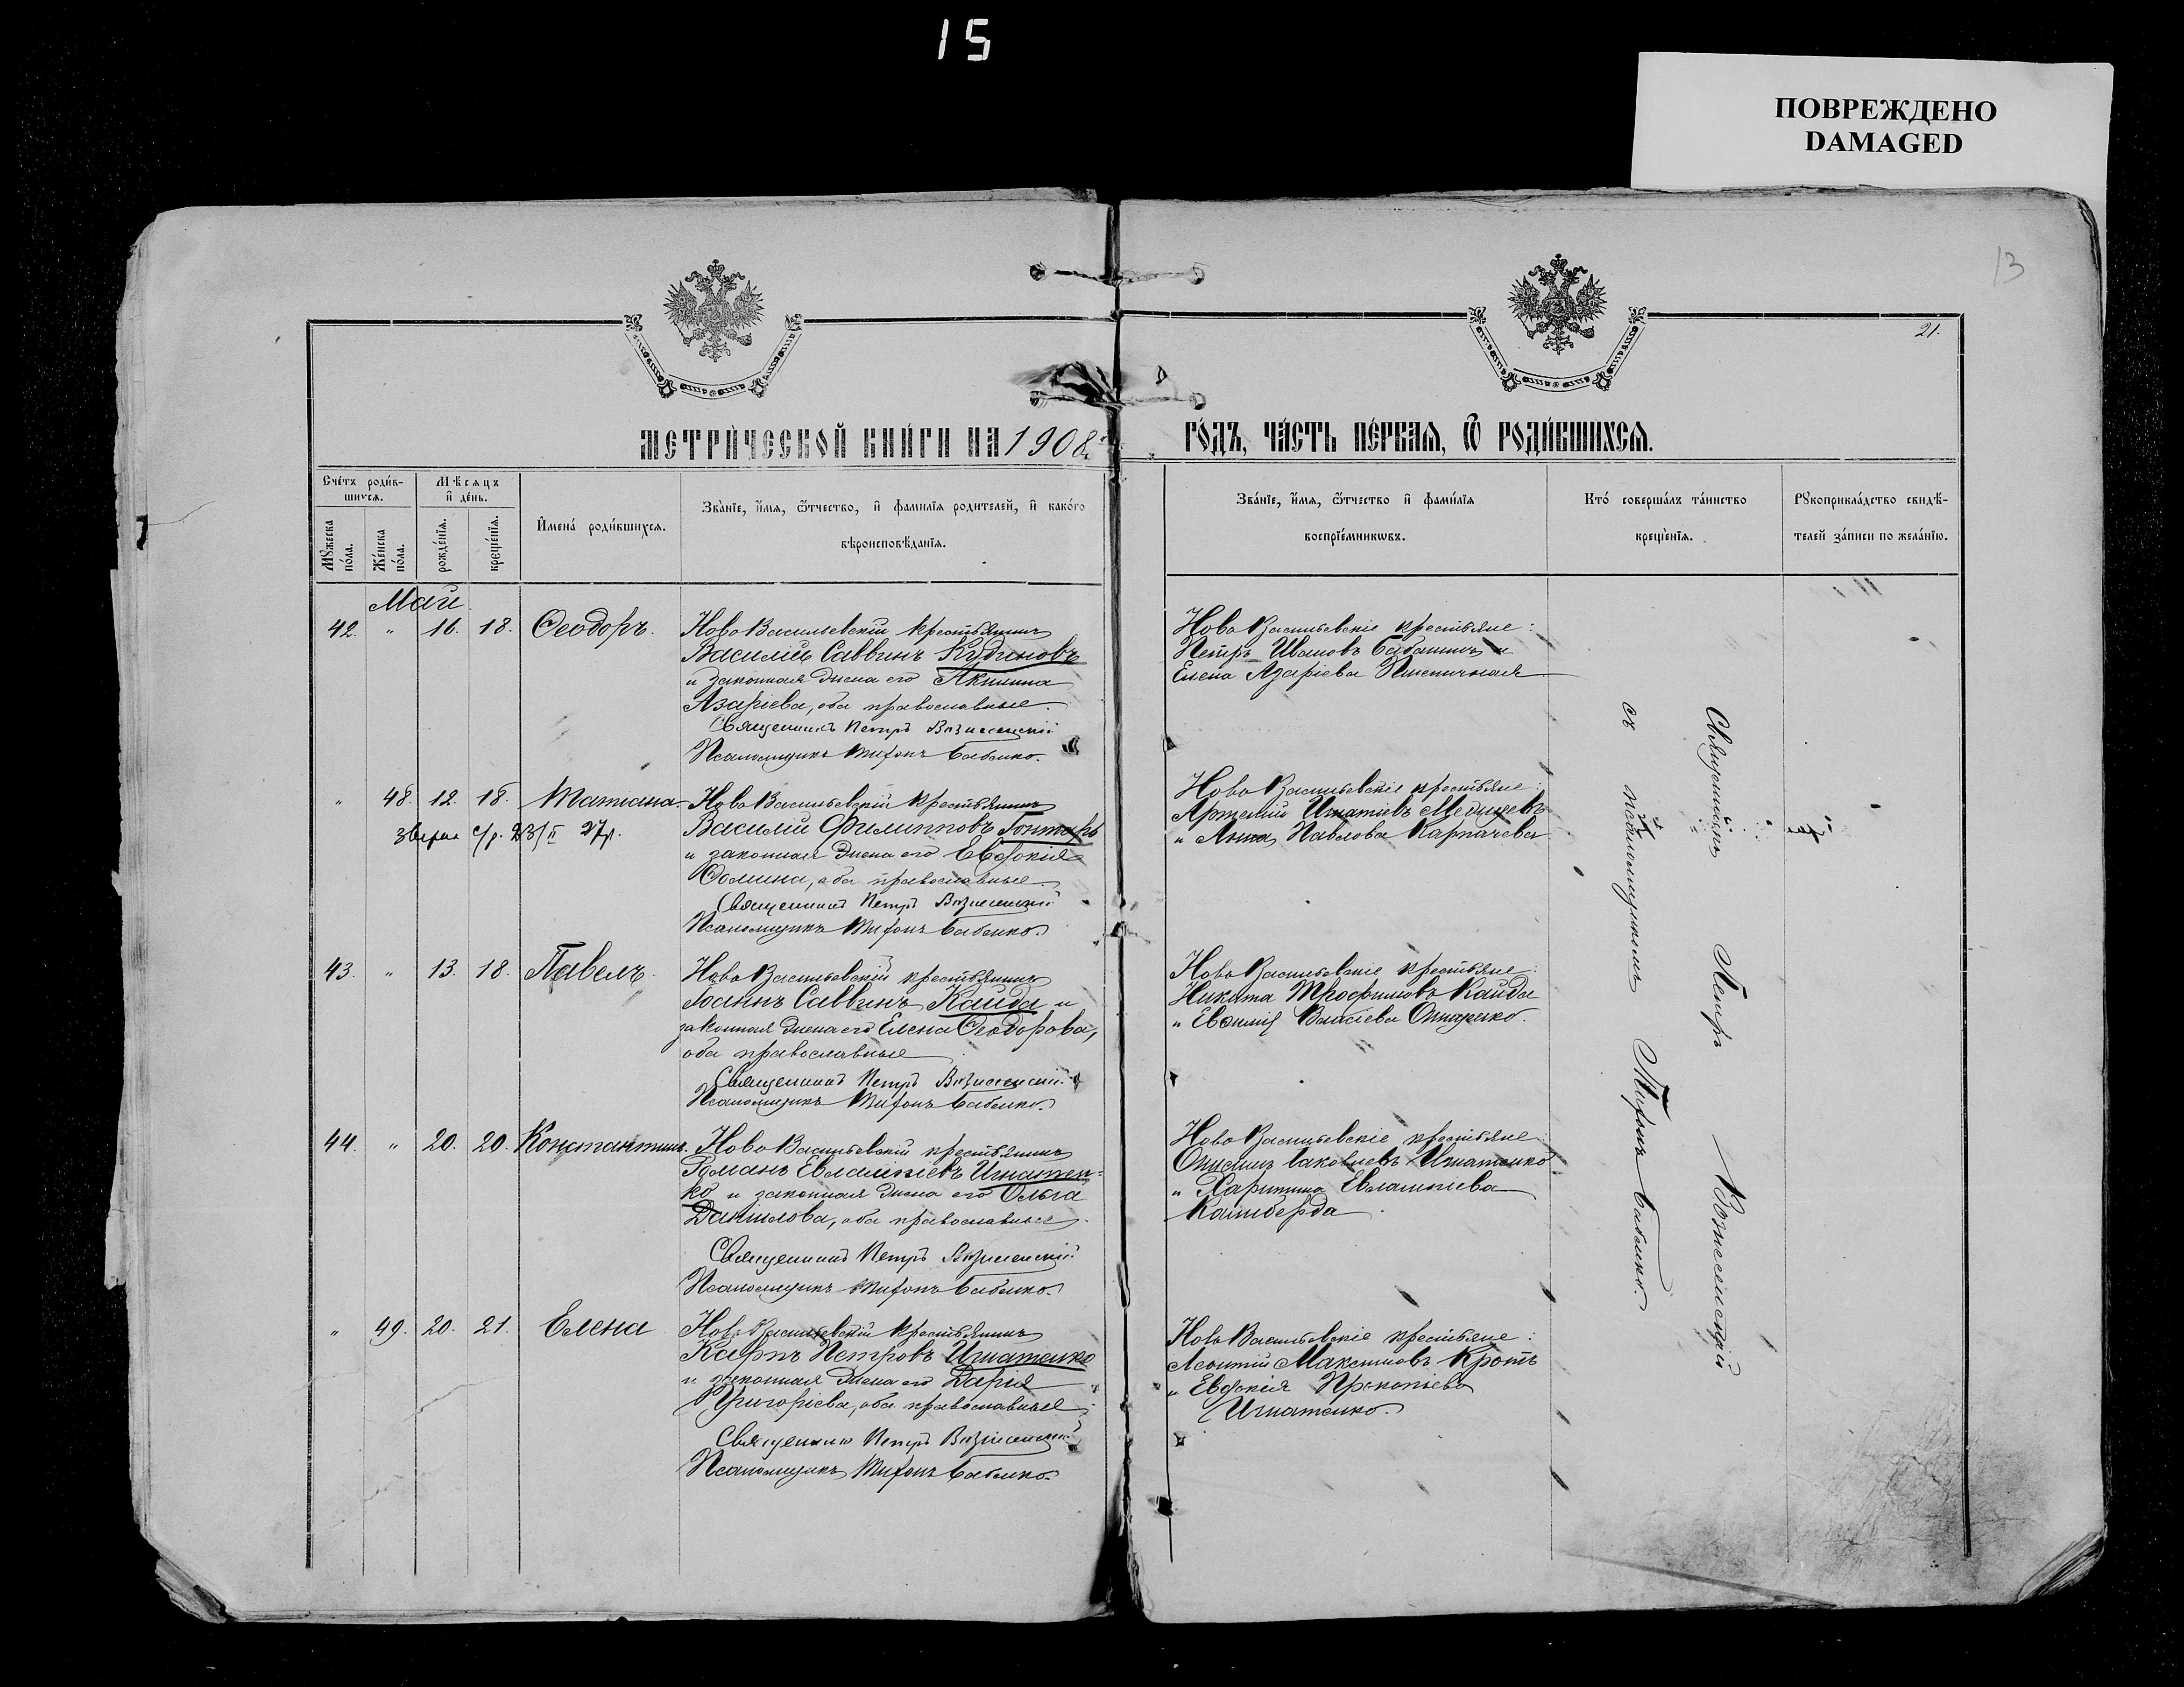 15
ПОВРЕЖДЕНО
DAMAGED
13
21.
МЕТРИ́ЧЕСКОЙ КНИ́ГИ НА 1908
ГО́ДЪ, ЧА́СТЬ ПЕ́РВАЯ, Ѿ РОДИ́ВШИХСЯ.
Сче́тъ роди́в-
шихся.
Мѣ́сяцъ
и҆ де́нь.
Мꙋ́жеска по́ла.
Же́нска по́ла.
рожде́нїя.
креще́нїя.
И҆мена̀ роди́вшихся.
Зва́нїе, и҆́мя, ѻ҆́тчество, и҆ фами́лїя родителей, и҆ како́гѡ
вѣроисповѣ́данїя.
Зва́нїе, и҆́мя, ѻ҆́тчество и҆ фами́лїя
воспрїе́мникѡвъ.
Кто̀ соверша́лъ та́инство
креще́нїя.
Рꙋкоприкла́дство свидѣ́-
телей за́писи по жела́нїю.
Май
42. " 16. 18. Ѳеодоръ.
НовоВасильевскій крестьянинъ
Василій Саввинъ Кудиновъ
и законная жена его Акилина
Азаріева, оба православные.
Священникъ Петръ Вознесенскій
Псаломщикъ Тифонъ Бабенко.
НовоВасильевскіе крестьяне:
Петръ Ивановъ и
Елена Азаріева Пшеничная
" 48. 12. 18. Татіана.
23/II 27г.
НовоВасильевскій крестьянинъ
Василій Филипповъ Гонтарь
и законная жена его Евдокія
Ѳомина, оба православные.
Священникъ Петръ Вознесенскій
Псаломщикъ Тифонъ Бабенко.
НовоВасильевскіе крестьяне:
Артемій Игнатіевъ
и Анна Павлова Карпачева
43. " 13. 18. Павелъ
НовоВасильевскій крестьянинъ
Іоаннъ Саввинъ Кайда и
законная жена его Елена Ѳеодорова,
оба православные
Священникъ Петръ Вознесенскій
Псаломщикъ Тифонъ Бабенко.
НовоВасильевскіе крестьяне:
Никита Трофимовъ Кайда
и
44. " 20. 20. Константинъ.
НовоВасильевскій крестьянинъ
Романъ Евлампіевъ Игнатен-
ко и законная жена его Ольга
Даніилова, оба православные.
Священникъ Петръ Вознесенскій
Псаломщикъ Тифонъ Бабенко.
НовоВасильевскіе крестьяне:
Онисимъ Іаковлевъ Игнатенко
и Харитина Евлампіева
Каймберда
" 49. 20. 21. Елена
НовоВасильевскій крестьянинъ
Карпъ Петровъ Игнатенко
и законная жена его Дарія
Григоріева, оба православные.
Священникъ Петръ Вознесенскій
Псаломщикъ Тифонъ Бабенко.
НовоВасильевскіе крестьяне:
Леонтій Максимовъ Кротъ
и Евдокія Прокопіева
Игнатенко.
Священникъ Петръ Вознесенскій
съ псаломщикомъ Тифонъ Бабенко.